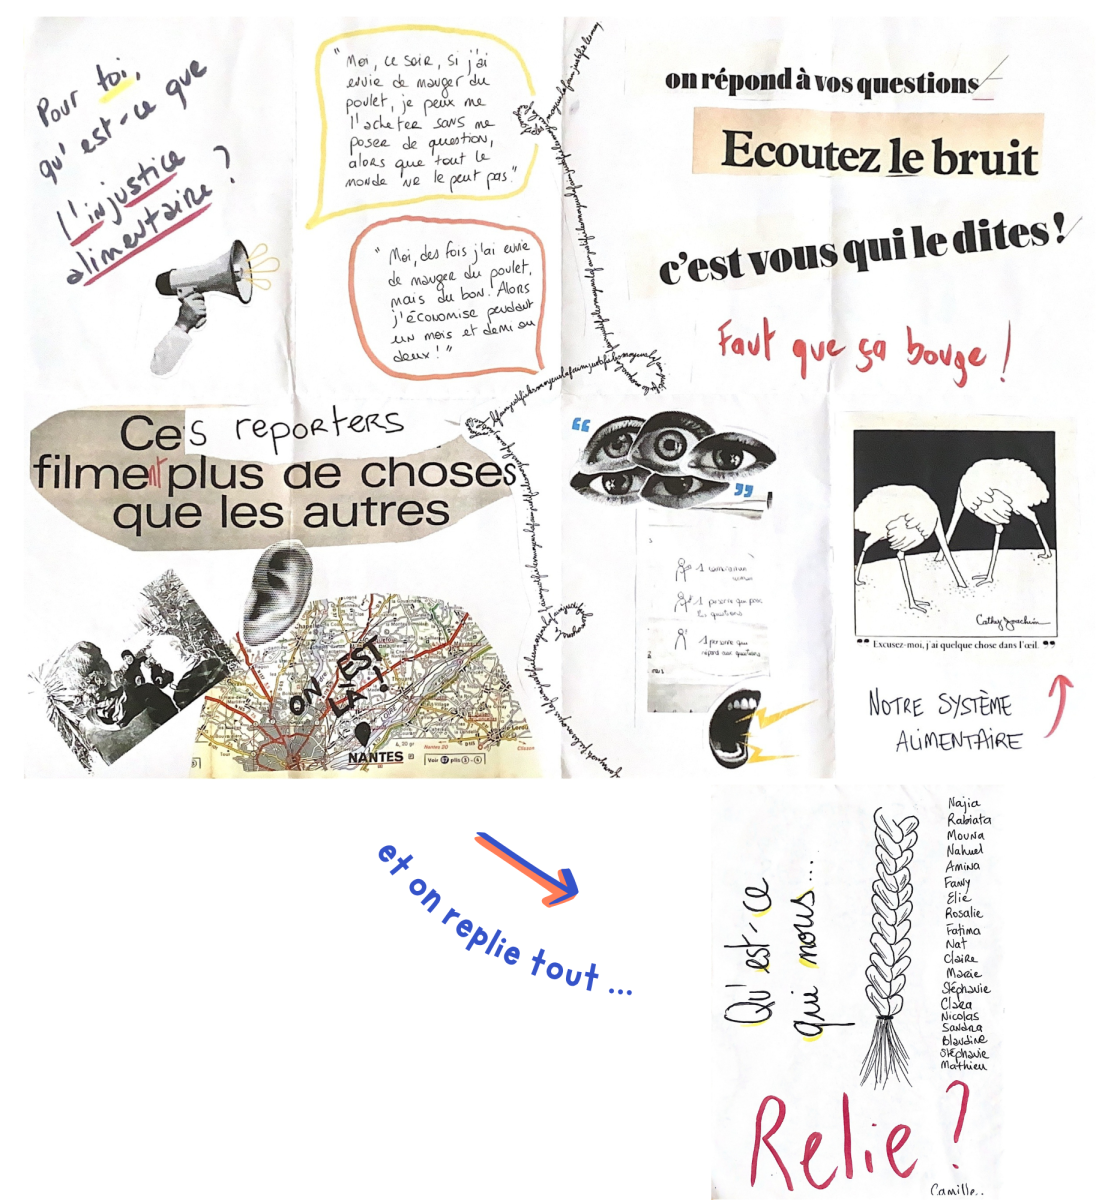 Pour toi,
qu'est-ce que
l'injustice
alimentaire ?
"Moi, ce soir, si j'ai
envie de manger du
poulet, je peux me
l'acheter sans me
poser de question,
alors que tout le
monde ne le peut pas."
"Moi, des fois j'ai envie
de manger du poulet,
mais du bon. Alors
j'économise pendant
un mois et demi ou
deux !"
on répond à vos questions
Ecoutez le bruit
c'est vous qui le dites !
Faut que ça bouge !
Ces reporters
filment plus de choses
que les autres
ON EST
LÀ !
NANTES
Voir 67 plis 3 - 4
“
”
1 personne qui pose
les questions
1 personne qui
répond aux questions
Cathy Joachim
“ Excusez-moi, j'ai quelque chose dans l'œil. ”
NOTRE SYSTÈME
ALIMENTAIRE
et on replie tout ...
Qu'est-ce
qui nous...
Relie ?
Najia
Rabiata
Mouna
Nahuel
Amina
Fanny
Élie
Rosalie
Fatima
Nat
Claire
Marie
Stéphanie
Clara
Nicolas
Sandra
Blandine
Stéphanie
Mathieu
Camille..